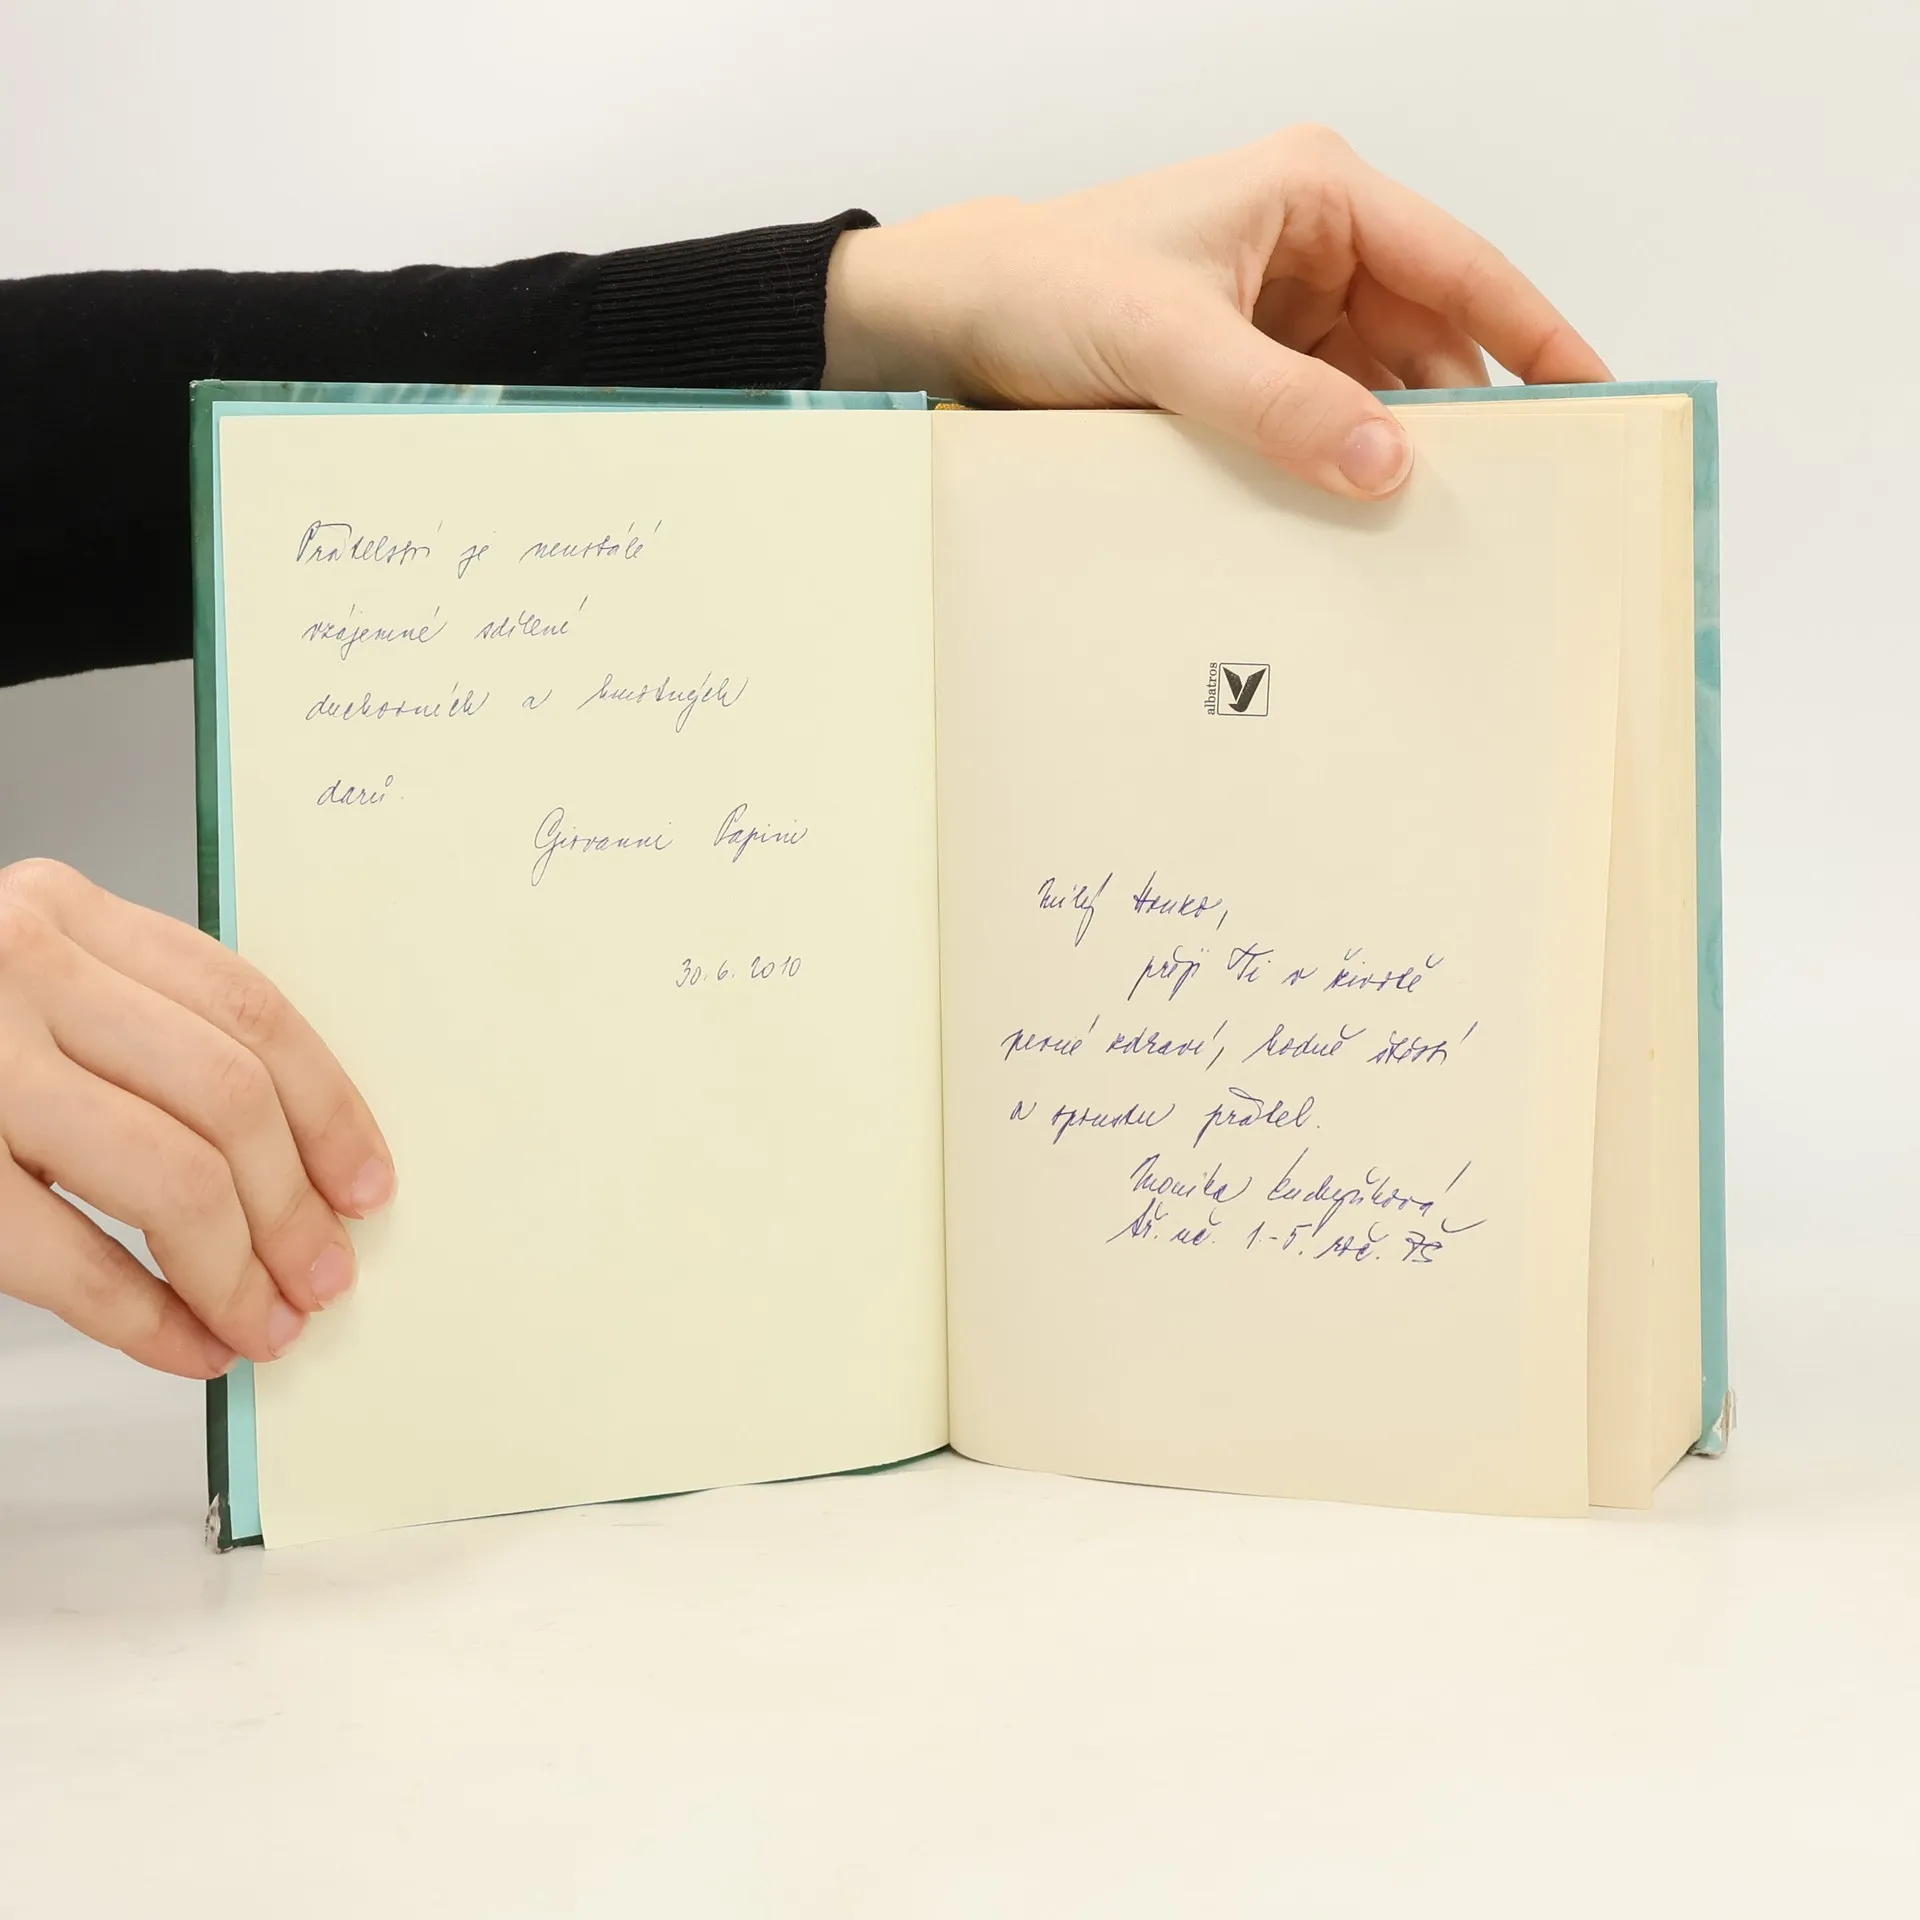 Přátelství je neustálé
vzájemné sdílení
duchovních a hmotných
darů.
Giovanni Papini
30.6.2010
albatros
Milý Honko,
přeji Ti v životě
pevné zdraví, hodně štěstí
a spoustu přátel.
Monika
tř. uč. 1.-5. roč. ZŠ